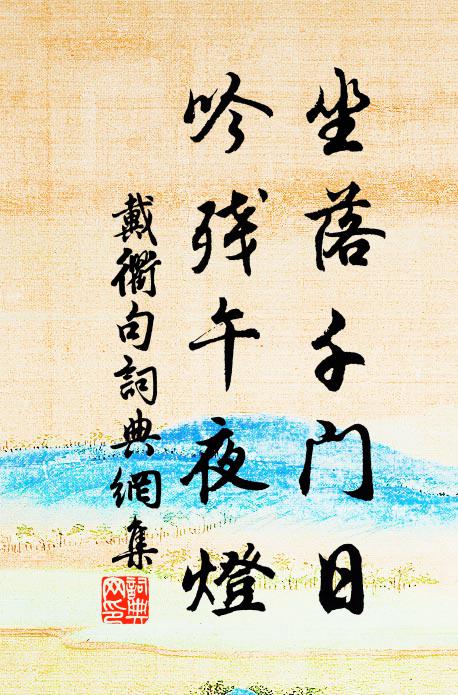 坐落千门日
吟残午夜燈
戴衢句詞典網集
詞典